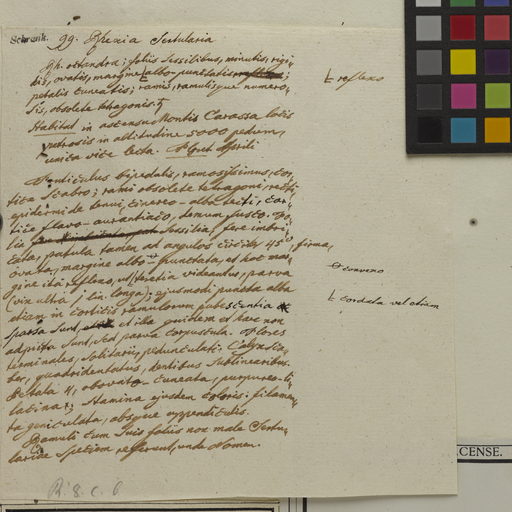 Schrank.
99. Rhexia Sertularia
Rh. octandra; foliis sessilibus, minutis, rigi-
dis, ovatis, margine albo-punctatis;
petalis cuneatis; ramis, ramulisque numero-
sis, obsolete tetragonis.
t reflexo
Habitat in ascensu Montis Carassa locis
petrosis in altitudine 5000 pedum,
unica vice lecta. Aprili
Fruticulus bipedalis, ramosissimus, cor-
tice scabro; rami obsolete tetragoni, vestiti
epidermide tenui, cinereo-albo tecti, cor-
tice flavo-aurantiaco, demum fusco. Fo-
lia sessilia, fere imbri-
cata, patula tamen ad angulos circiter 45°, firma,
ovata, margine albo-punctata, et hoc mar-
convexo
gine ita reflexo, ut teretia videantur, parva
(vix ultra 1 lin. longa); ejusmodi puncta alba
t cordata vel etiam
etiam in corticis ramulorum pubescentia
sparsa sunt, et illa quidem et haec non
adpicta sunt, sed parva corpuscula. Flores
terminales, solitarii, pedunculati. Calyx li-
ber, quadridentatus, dentibus sublinearibus.
Petala 4, obovato-cuneata, purpureo-vi-
latina; Stamina ejusdem coloris: filamen-
ta geniculata, absque appendiculis.
Ramuli cum suis foliis non male Sertu-
lariae speciem referunt, unde Nomen.
R. 8. c. 6
CENSE.